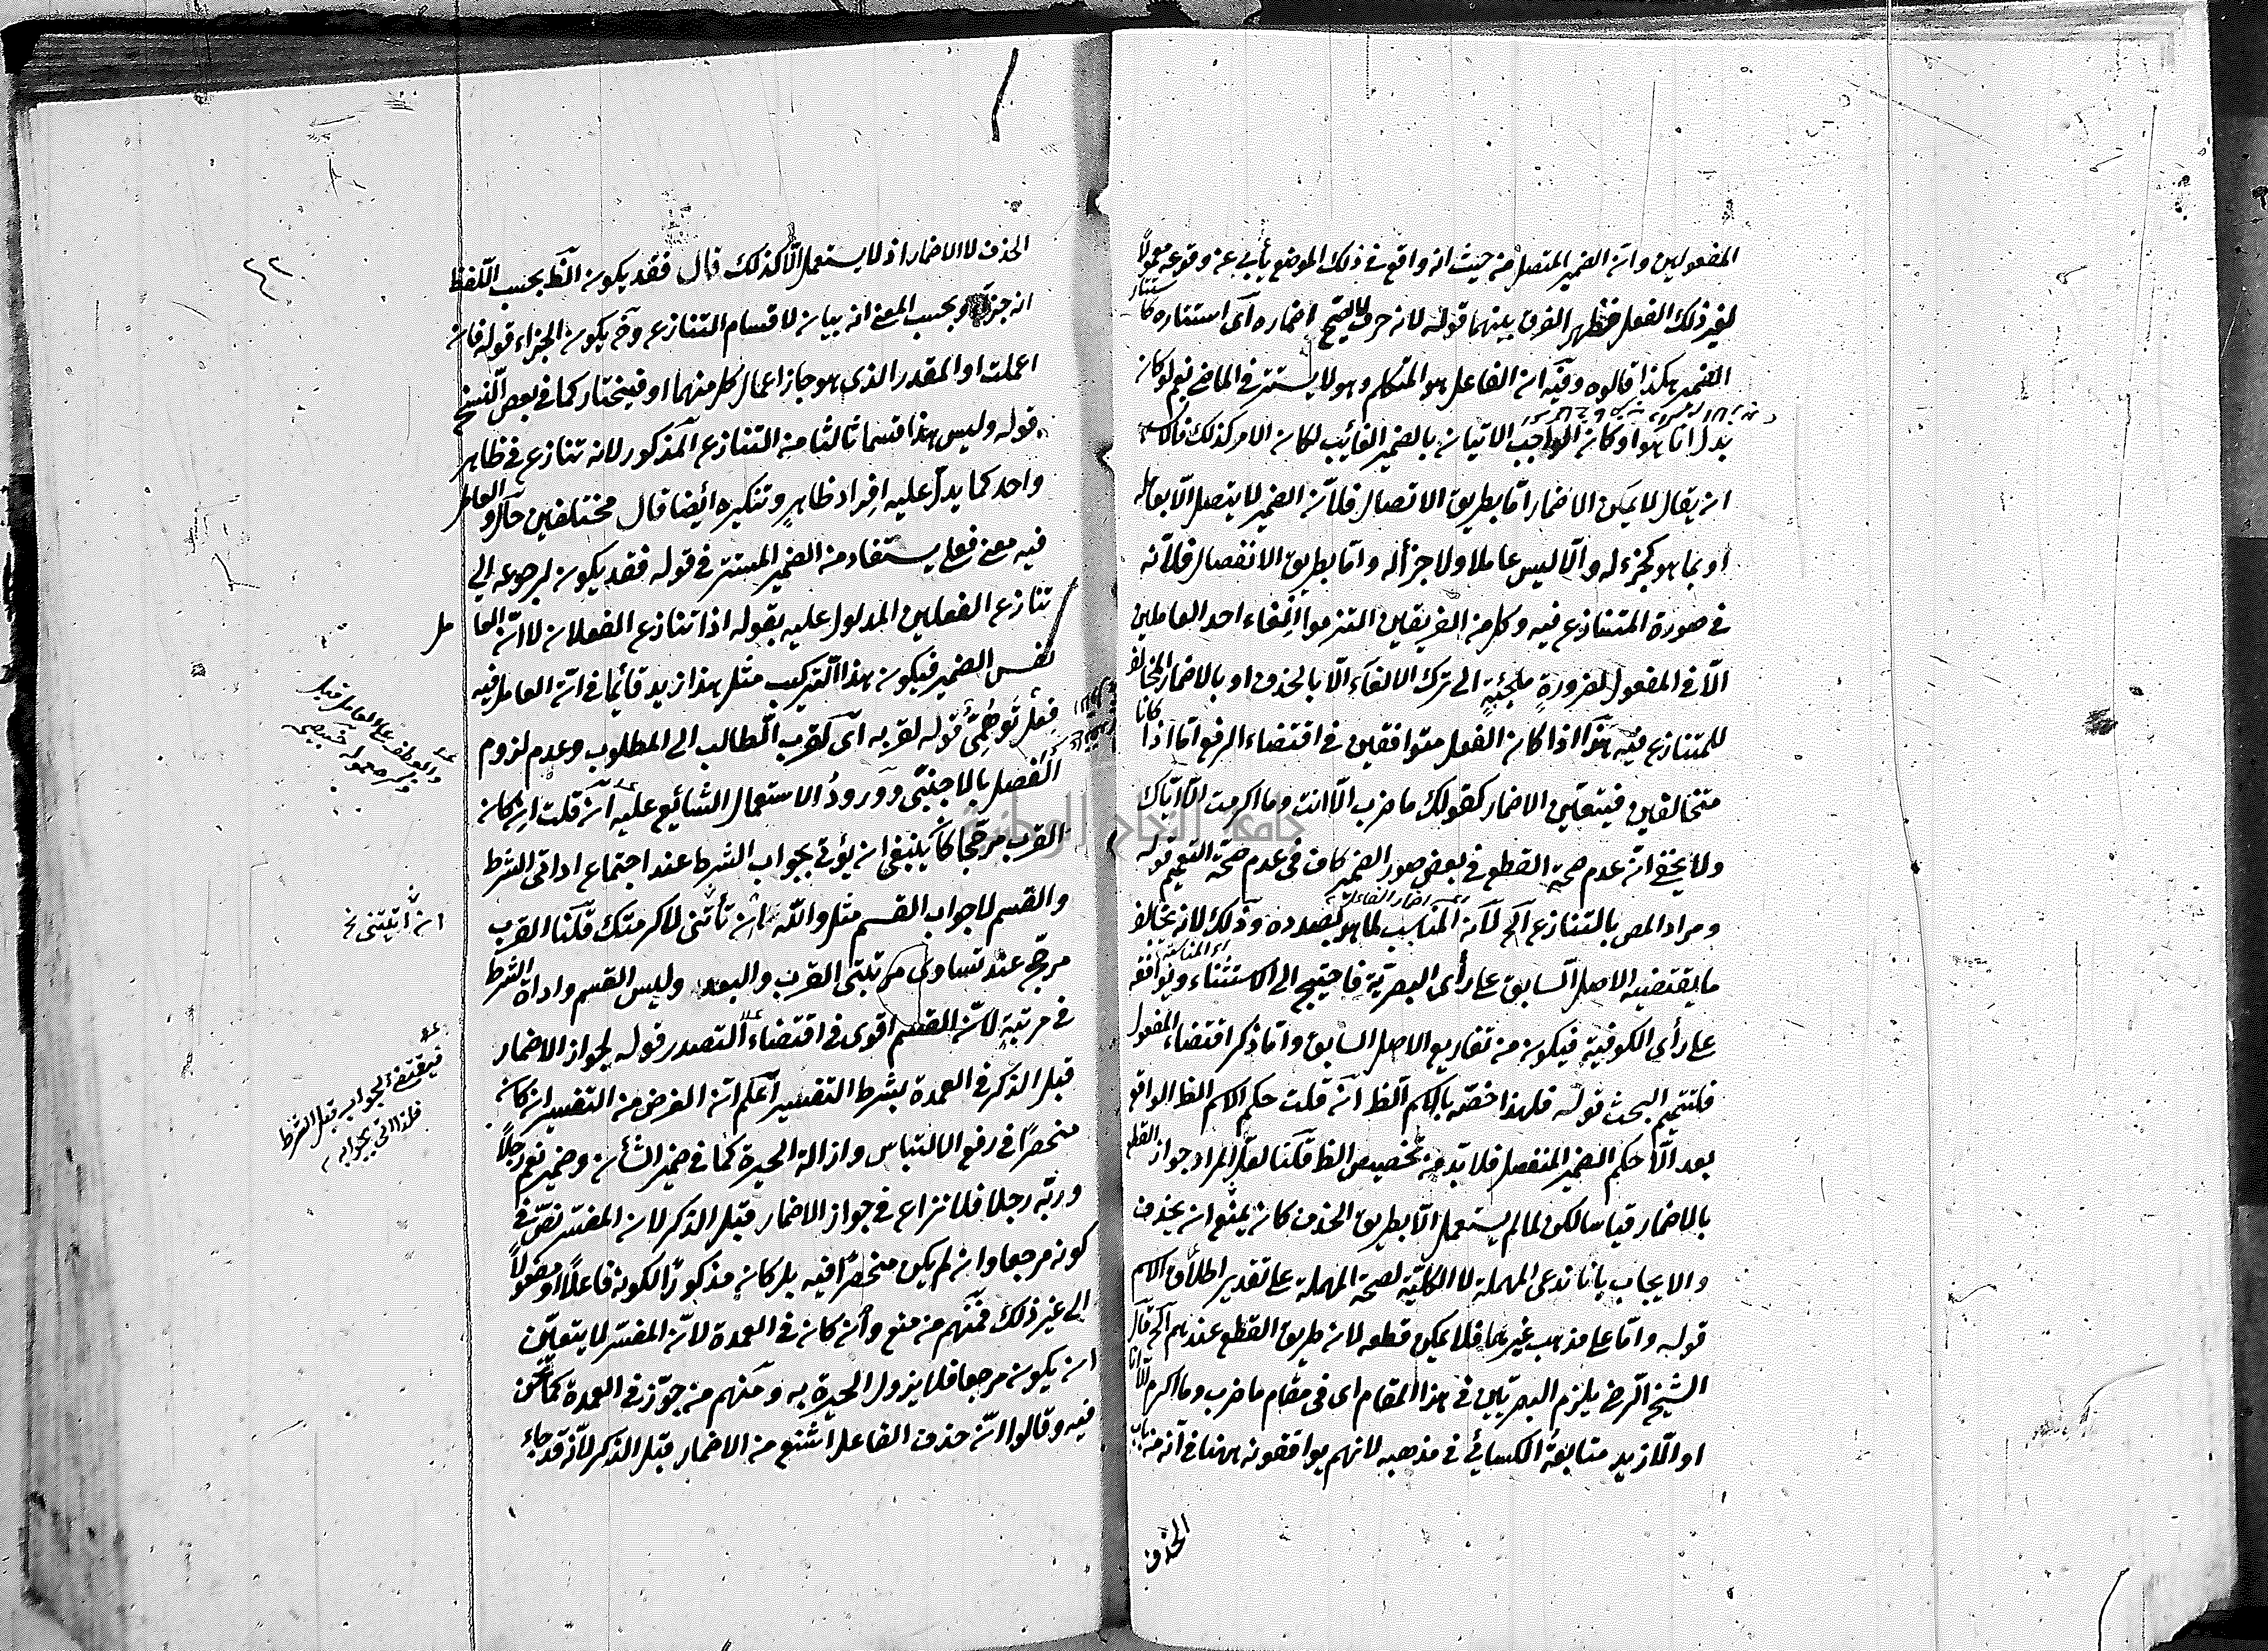 المفعولين وان الضمير المتصل من حيث انه واقع فى ذلك الموضع يأبى عن وقوعه معمولا
لغير ذلك الفعل فظهر الفرق بينهما قوله لانه حرف لا يصح اضماره اى استتاره كا
ستتار
الضمير هكذا قالوه وفيه ان الفاعل هو المتكلم وهو لا يستتر فى الماضى نعم لو كان
بدل انا هو او كان الواجب الاتيان بالضمير الغائب لكان الامر كذلك فالاسلم
ان يقال لا يمكن الاضمار اما بطريق الاتصال فلان الضمير لا يتصل الا بعامله
او بما هو كجزء له والا ليس عاملا ولا جزأ له واما بطريق الانفصال فلانه
فى صورة المتنازع فيه وكل من الفريقين التزموا الغاء احد العاملين
الا فى المفعول لضرورة ملجئية الى ترك الالغاء الا بالحذف او بالاضمار المخالف
للمتنازع فيه هذا اذا كان الفعل متوافقين فى اقتضاء الرفع اما اذا كانا
متخالفين فيتعين الاضمار كقولك ما ضرب الا انت وما اكرمت الا اياك
ولا يخفى ان عدم صحة القطع فى بعض صور الضمير كاف فى عدم صحة التعميم قوله
ومراد المص بالتنازع آلخ لان المناسب لما هو بصدده وذلك لانه يخالف
ما يقتضيه الاصل السابق على رأى البصرية فاحتيج الى الاستثناء ويوافقه
على رأى الكوفية فيكون من تفاريع الاصل السابق واما ذكر اقتضاء المفعول
فلتتميم البحث قوله فلهذا خصه بالاسم الظ ان قلت حكم الاسم الظ الواقع
بعد الا حكم الضمير المنفصل فلا بد من تخصيص الظ قلنا لعل المراد جواز القطع
بالاضمار قياسا لكن لما لم يستعمل الا بطريق الحذف كان يمنع ان يحذف
والا يجاب بانا ندعى المهملة لا الكلية لصحة المهملة على تقدير اطلاق الاسم
قوله واما على مذهب غيرهما فلا يمكن قطعه لان طريق القطع عندهم آلخ قال
الشيخ الرضى يلزم البصريين فى هذا المقام اى فى مقام ما ضرب وما اكرم الا انا
او الا زيد متابعة الكسائي فى مذهبه لانهم يوافقونه ههنا فى انه من باب
الحذف
٤٢
الحذف لا الاضمار اذ لا يستعمل الا كذلك قال فقد يكون الظ بحسب اللفظ
انه جزاء وبحسب المعنى انه بيان لاقسام التنازع وح يكون الجزاء قوله فان
اعملت او المقدر الذى هو جاز اعمال كل منهما او فيختار كما فى بعض النسخ
قوله وليس هذا قسما ثالثا من التنازع المذكور لانه تنازع فى ظاهر
واحد كما يدل عليه افراد ظاهر وتنكيره ايضا قال مختلفين حال والعامل
فيه معنى فعلى يستفاد من الضمير المستتر فى قوله فقد يكون لرجوعه الى
تنازع الفعلين المدلول عليه بقوله اذا تنازع الفعلان لا ان العامل
نفس الضمير فيكون هذا التركيب مثل هذا زيد قائما فى ان العامل فيه
فعل توهمى قوله لقربه اى لقرب الطالب الى المطلوب وعدم لزوم
الفصل بالاجنبى وورود الاستعمال الشائع عليه ان قلت ان كان
القرب مرجحا كا ينبغى ان يؤتى بجواب الشرط عند اجتماع اداتى الشرط
والقسم لا جواب القسم مثل والله ان تأتنى لاكرمتك قلنا القرب
مرجح عند تساوى مرتبتى القرب والبعد وليس القسم واداة الشرط
فى مرتبة لان القسم اقوى فى اقتضاء التصدر قوله لجواز الاضمار
قبل الذكر فى العمدة بشرط التفسير اعلم ان الغرض من التفسير ان كان
منحصرا فى رفع الالتباس وازالة الحيرة كما فى ضمير الشأن وضمير نعم رجلا
وربه رجلا فلا نزاع فى جواز الاضمار قبل الذكر لان المفسر نص فى
كونه مرجعا وان لم يكن منحصرا فيه بل كان مذكورا لكونه فاعلا او مفعولا
الى غير ذلك فمنهم من منع وان كان فى العمدة لان المفسر لا يتعين
ان يكون مرجعا فلا يزول الحيرة به ومنهم من جوز فى العمدة كما نحن
فيه وقالوا ان حذف الفاعل اشنع من الاضمار قبل الذكر لانه قد جاء
والعطف على العامل قبل
ذكر معموله
ان اتيتنى نخ
فيقتضى الجواب قبل الشرط
فلذا اتى بجوابه
جامعة النجاح الوطنية